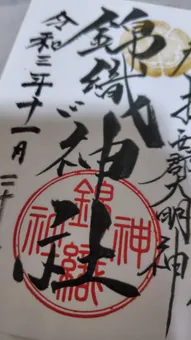 大明神
錦織神社
令和三年十一月二十
錦織神社